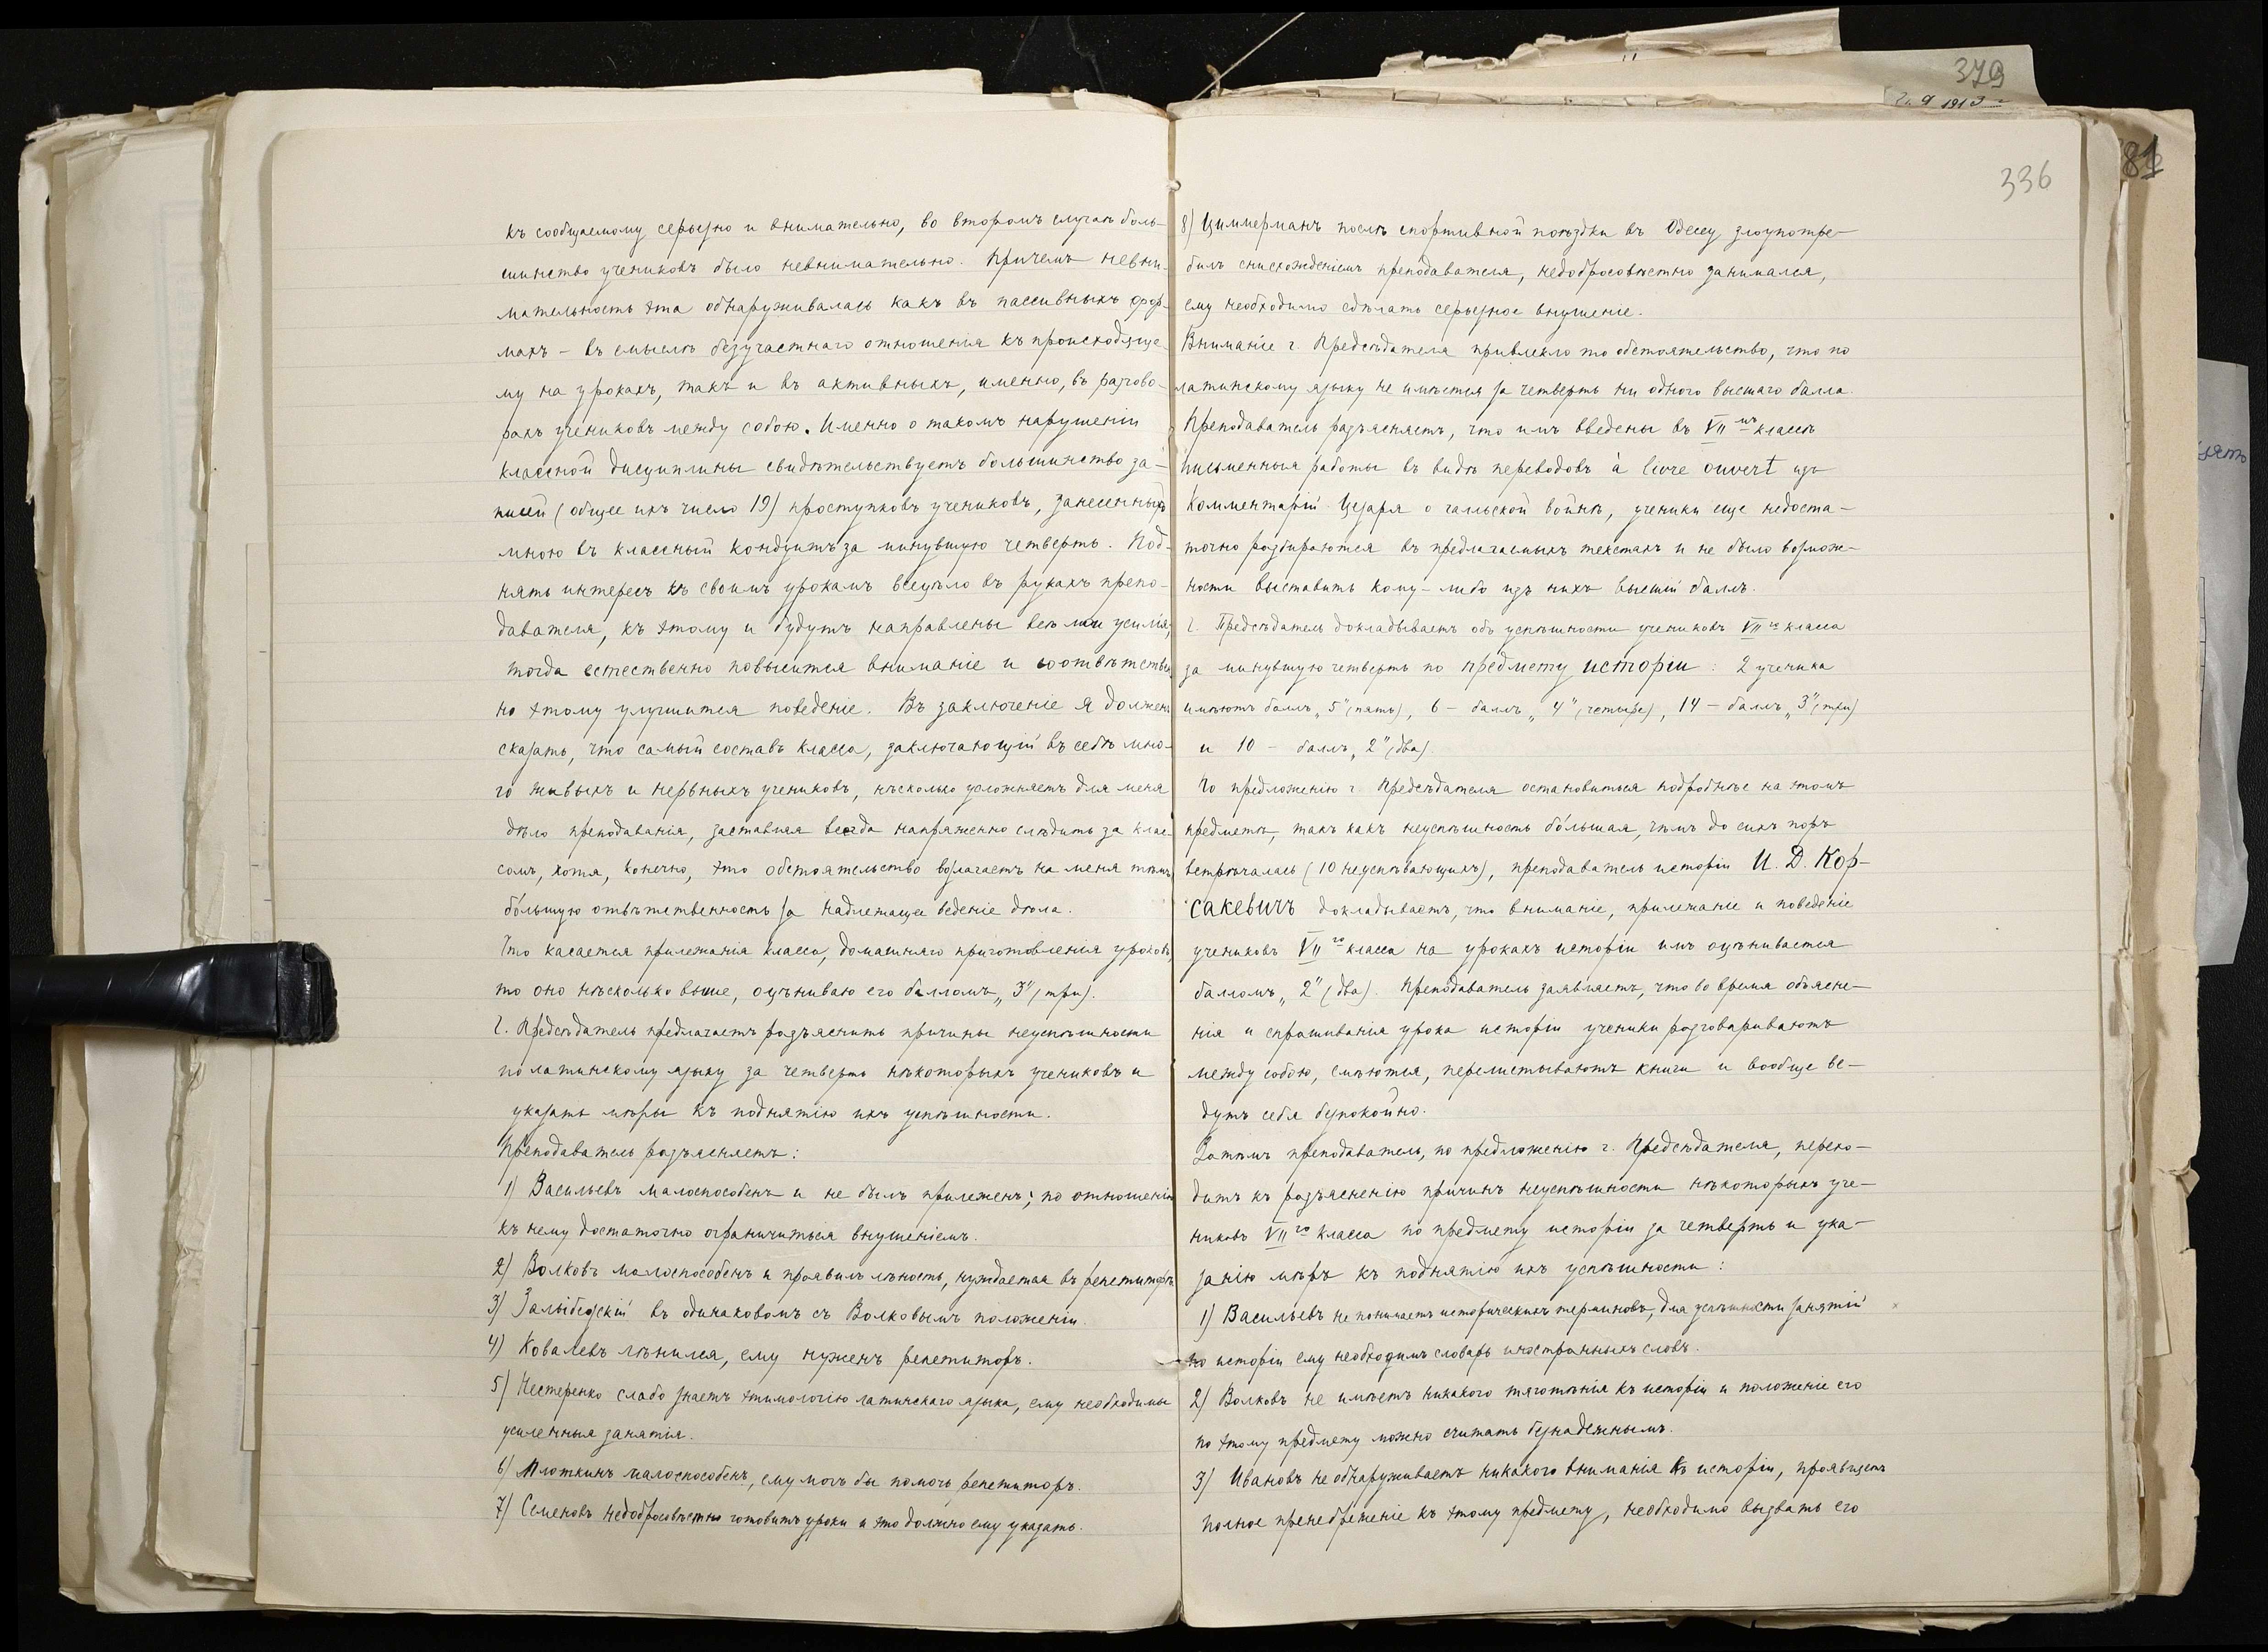 къ сообщаемому серьезно и внимательно, во второмъ случаѣ боль-
шинство учениковъ было невнимательно. Причемъ невни-
мательность эта обнаруживалась какъ въ пассивныхъ фор-
махъ - въ смыслѣ безучастнаго отношенія къ происходяще-
му на урокахъ, такъ и въ активныхъ, именно, въ разгово-
рахъ учениковъ между собою. Именно о такомъ нарушеніи
классной дисциплины свидѣтельствуетъ большинство за-
писей (общее ихъ число 19) проступковъ учениковъ, занесенныхъ
мною въ классный кондуитъ за минувшую четверть. Под-
нять интересъ къ своимъ урокамъ всецѣло въ рукахъ препо-
давателя, къ этому и будутъ направлены всѣ мои усилія,
тогда естественно повысится вниманіе и соотвѣтствен
но этому улучшится поведеніе. Въ заключеніе я долженъ
сказать, что самый составъ класса, заключающій въ себѣ мно-
го живыхъ и нервныхъ учениковъ, нѣсколько усложняетъ для меня
дѣло преподаванія, заставляя всегда напряженно слѣдить за клас-
сомъ, хотя, конечно, это обстоятельство возлагаетъ на меня тѣмъ
бо́льшую отвѣтственность за надлежащее веденіе дѣла.
Что касается прилежанія класса, домашняго приготовленія уроковъ,
то оно нѣсколько выше, оцѣниваю его балломъ „3" (три).
Г. Предсѣдатель предлагаетъ разъяснить причины неуспѣшности
по латинскому языку за четверть нѣкоторыхъ учениковъ и
указать мѣры къ поднятію ихъ успѣшности.
Преподаватель разъясняетъ:
1) Васильевъ малоспособенъ и не былъ прилеженъ; по отношенію
къ нему достаточно ограничиться внушеніемъ.
2) Волковъ малоспособенъ и проявилъ лѣность, нуждается въ репетиторѣ
3) въ одинаковомъ съ Волковымъ положеніи.
4) Ковалевъ лѣнился, ему нуженъ репетиторъ.
5) Нестеренко слабо знаетъ этимологію латинскаго языка, ему необходимы
усиленныя занятія.
6) Плоткинъ малоспособенъ, ему могъ бы помочь репетиторъ.
7) Семеновъ недобросовѣстно готовитъ уроки и это должно ему указать.
379
1913
81
336
8) Циммерманъ послѣ спортивной поѣздки въ Одессу злоупотре-
билъ снисхожденіемъ преподавателя, недобросовѣстно занимался,
ему необходимо сдѣлать серьезное внушеніе.
Вниманіе г. Предсѣдателя привлекло то обстоятельство, что по
латинскому языку не имѣется за четверть ни одного высшаго балла.
Преподаватель разъясняетъ, что имъ введены въ VII мъ классѣ
письменныя работы въ видѣ переводовъ à livre ouvert изъ
Комментарій Цезаря о гальской войнѣ, ученики еще недоста-
точно разбираются въ предлагаемыхъ текстахъ и не было возмож-
ности выставить кому-либо изъ нихъ высшій баллъ.
Г. Предсѣдатель докладываетъ объ успѣшности учениковъ VII го класса
за минувшую четверть по предмету исторіи: 2 ученика
имѣютъ баллъ „5" (пять), 6 - баллъ „4" (четыре), 14 - баллъ „3" (три)
и 10 - баллъ „2" (два).
По предложенію г. Предсѣдателя остановиться подробнѣе на этомъ
предметѣ, такъ какъ неуспѣшность бо́льшая, чѣмъ до сихъ поръ
встрѣчалась (10 неуспѣвающихъ), преподаватель исторіи И. Д. Кор-
сакевичъ докладываетъ, что вниманіе, прилежаніе и поведеніе
учениковъ VII го класса на урокахъ исторіи имъ оцѣнивается
балломъ „2" (два). Преподаватель заявляетъ, что во время объясне-
нія и спрашиванія урока исторіи ученики разговариваютъ
между собою, смѣются, перелистываютъ книги и вообще ве-
дутъ себя безпокойно.
Затѣмъ преподаватель, по предложенію г. Предсѣдателя, перехо-
дитъ къ разъясненію причинъ неуспѣшности нѣкоторыхъ уче-
никовъ VII го класса по предмету исторіи за четверть и ука-
занію мѣръ къ поднятію ихъ успѣшности:
1) Васильевъ не понимаетъ историческихъ терминовъ, для успѣшности занятій
по исторіи ему необходимъ словарь иностранныхъ словъ.
2) Волковъ не имѣетъ никакого тяготѣнія къ исторіи и положеніе его
по этому предмету можно считать безнадежнымъ.
3) Ивановъ не обнаруживаетъ никакого вниманія къ исторіи, проявляетъ
полное пренебреженіе къ этому предмету, необходимо вызвать его